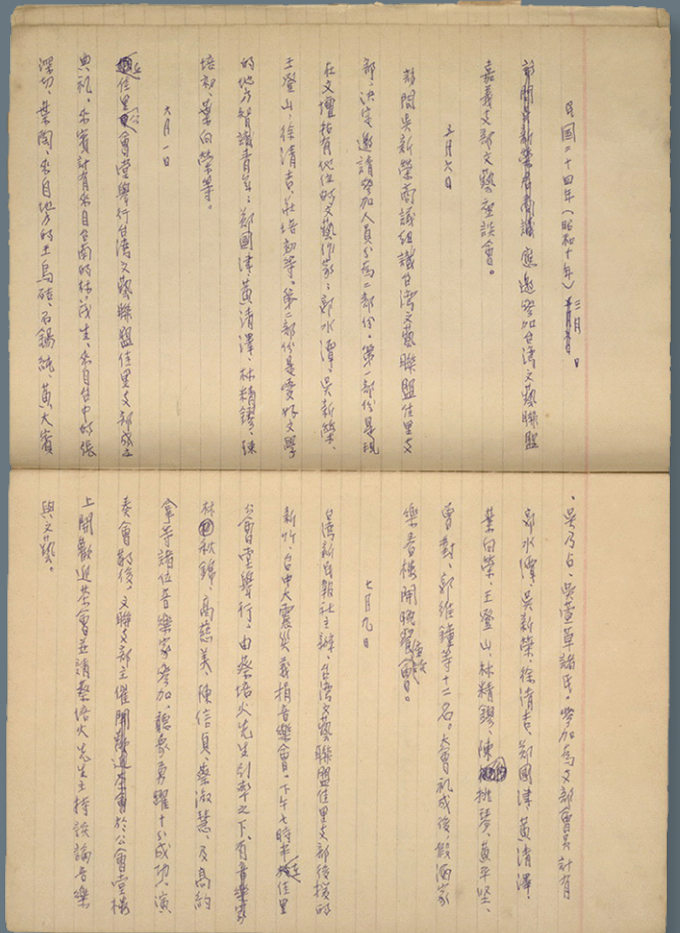 民國二十四年(昭和十年)三月 日
郭間吳新榮君商議應邀參加台灣文藝聯盟
嘉義支部文藝座談會。
五月六日
訪問吳新榮商議組識台灣文藝聯盟佳里支
部、決定邀請參加人員分爲二部份。第一部份是現
在文壇柏有地位的文藝作家:郭水潭、吳新榮、
王登山、徐清吉、莊培初等。第二部份是愛好文學
的地方智識青年:鄭國津、黃清澤、林精鏐、陳
培初、葉向榮等。
六月一日
在佳里公會堂舉行台湾文藝聯盟佳里支部成立
典礼。來賓計有來自台南的林茂生、來自台中的張
深切、葉陶、來自地方的王烏硈、石錫純、黃大賓
、吳乃占、吳萱草諸氏。參加爲支部會員計有
郭水潭、吳新榮、徐清吉、鄭國津、黃清澤、
葉向榮、王登山、林精鏐、陳挑琴、黃平堅、
曾對、郭維鐘等十二名。大會礼成後、假酒家
樂春樓開晚餐會。
七月九日
台湾新民報社主辦、台湾文藝聯盟佳里支部後援的
新竹、台中大震災義捐音樂會。下午七時半在佳里
公會堂舉行、由蔡培火先生引率之下、有
林秋錦、高慈美、陳信貞、蔡淑慧、及高約
拿等諸位音樂家參加、聽衆勇躍十分成功、演
奏會散後、文聯支部主催於公會堂樓
上開歡迎茶會並請蔡培火先生主持談論音樂
與文藝。